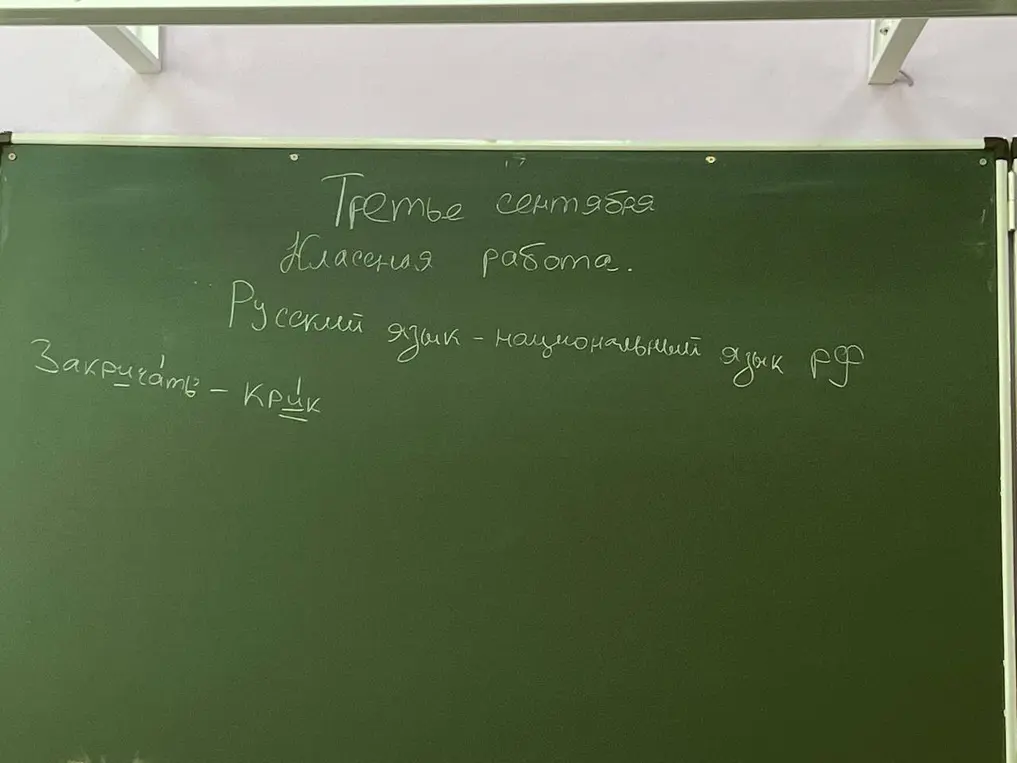 Третье сентября
Классная работа.
Русский язык - национальный язык РФ
Закрича́ть - кри́к